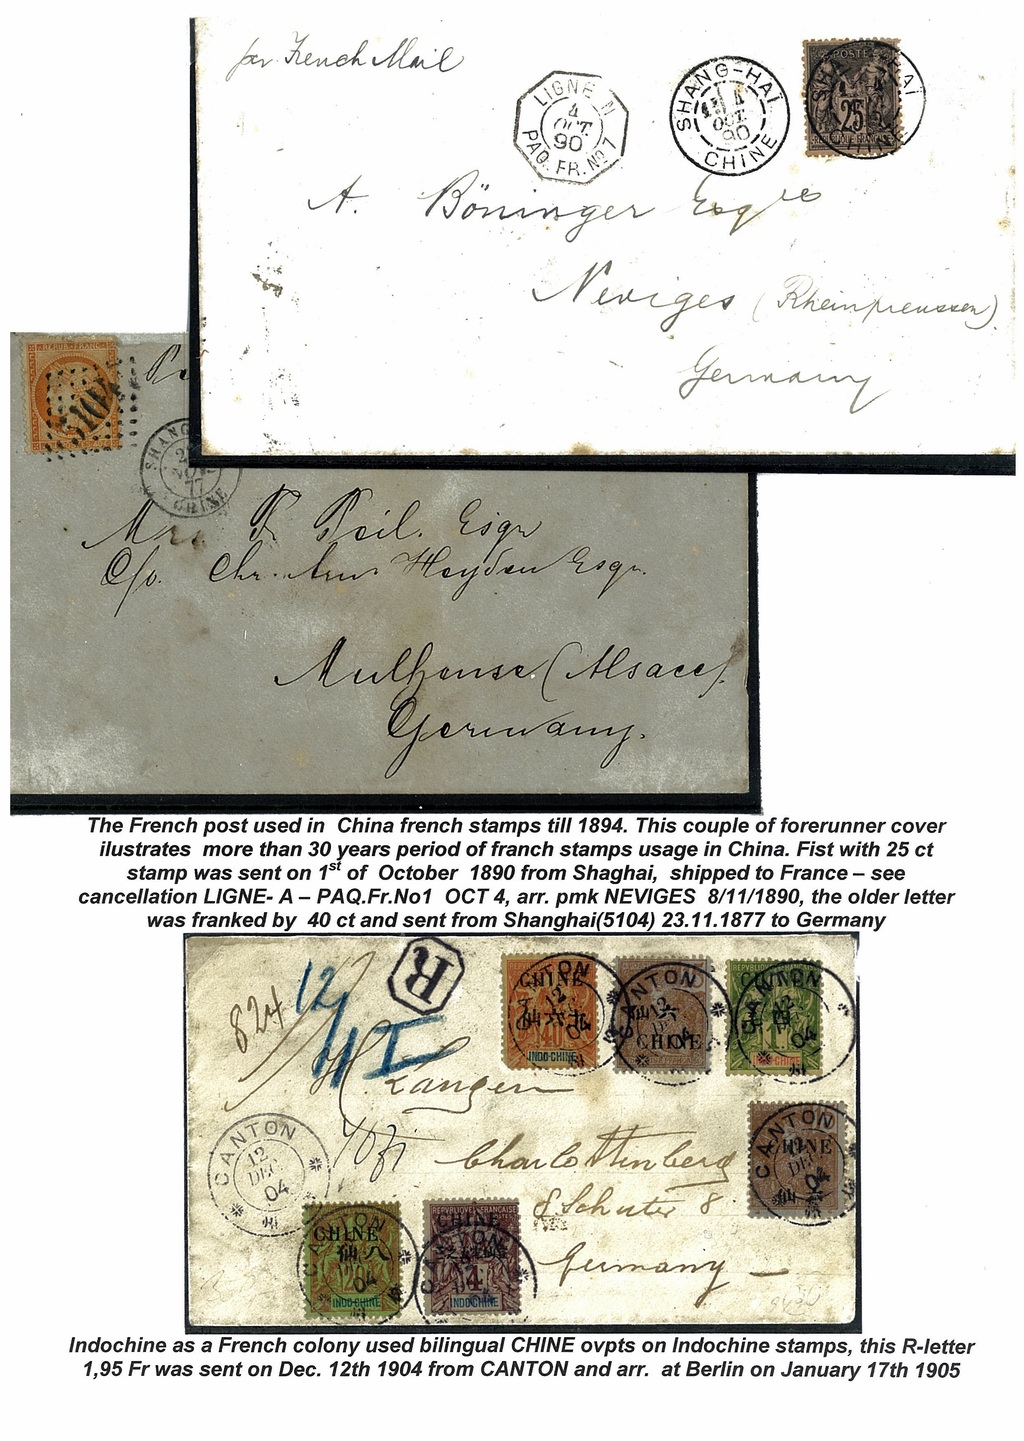 per French Mail
LIGNE N
4
OCT.
90
PAQ. FR. No 7
SHANG-HAI
4
OCT.
90
CHINE
POSTE
25
SHANG-HAI
CHINE
A. Böninger Esqre
Neviges (Rheinpreussen)
Germany
REPUB. FRANC.
5104
SHANG
NOV
77
CHINE
Mr. F. Peil. Esqr
C/o. Chr. Heyden Esqr.
Mulhouse (Alsace).
Germany.
The French post used in China french stamps till 1894. This couple of forerunner cover
ilustrates more than 30 years period of franch stamps usage in China. Fist with 25 ct
stamp was sent on 1st of October 1890 from Shaghai, shipped to France – see
cancellation LIGNE- A – PAQ.Fr.No1 OCT 4, arr. pmk NEVIGES 8/11/1890, the older letter
was franked by 40 ct and sent from Shanghai(5104) 23.11.1877 to Germany
R
824
12
CANTON
12
04
CHINE
40
INDO-CHINE
CANTON
CHINE
04
CANTON
12
04
INDO-CHINE
H. Langen
CANTON
12
DEC
04
Charlottenberg
CANTON
CHINE
12
DEC
04
8 Schuter 8
Germany
CANTON
CHINE
仙八
20
04
INDO-CHINE
REPVBLIQVE FRANCAISE
CHINE
CANTON
4
INDO-CHINE
Indochine as a French colony used bilingual CHINE ovpts on Indochine stamps, this R-letter
1,95 Fr was sent on Dec. 12th 1904 from CANTON and arr. at Berlin on January 17th 1905